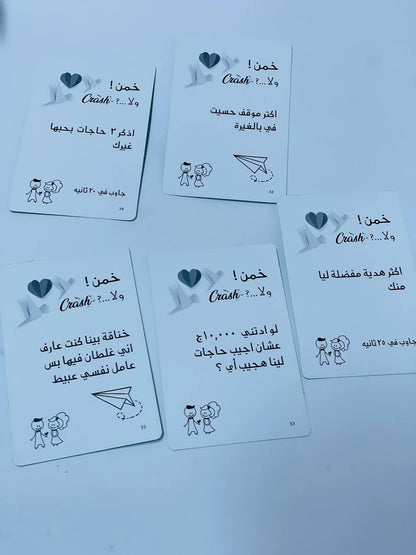 خمن !
ولا...؟ Crash
اكتر موقف حسيت
في بالغيرة
33
خمن !
ولا...؟ Crash
اذكر ٣ حاجات بحبها
غيرك
جاوب في ٢٠ ثانيه
34
خمن !
ولا...؟ Crash
اكثر هدية مفضلة ليا
منك
جاوب في ٢٥ ثانيه
خمن !
ولا...؟ Crash
لو ادتني ١٠,٠٠٠ج
عشان أجيب حاجات
لينا هجيب أي ؟
33
خمن !
ولا...؟ Crash
خناقة بينا كنت عارف
اني غلطان فيها بس
عامل نفسي عبيط
33